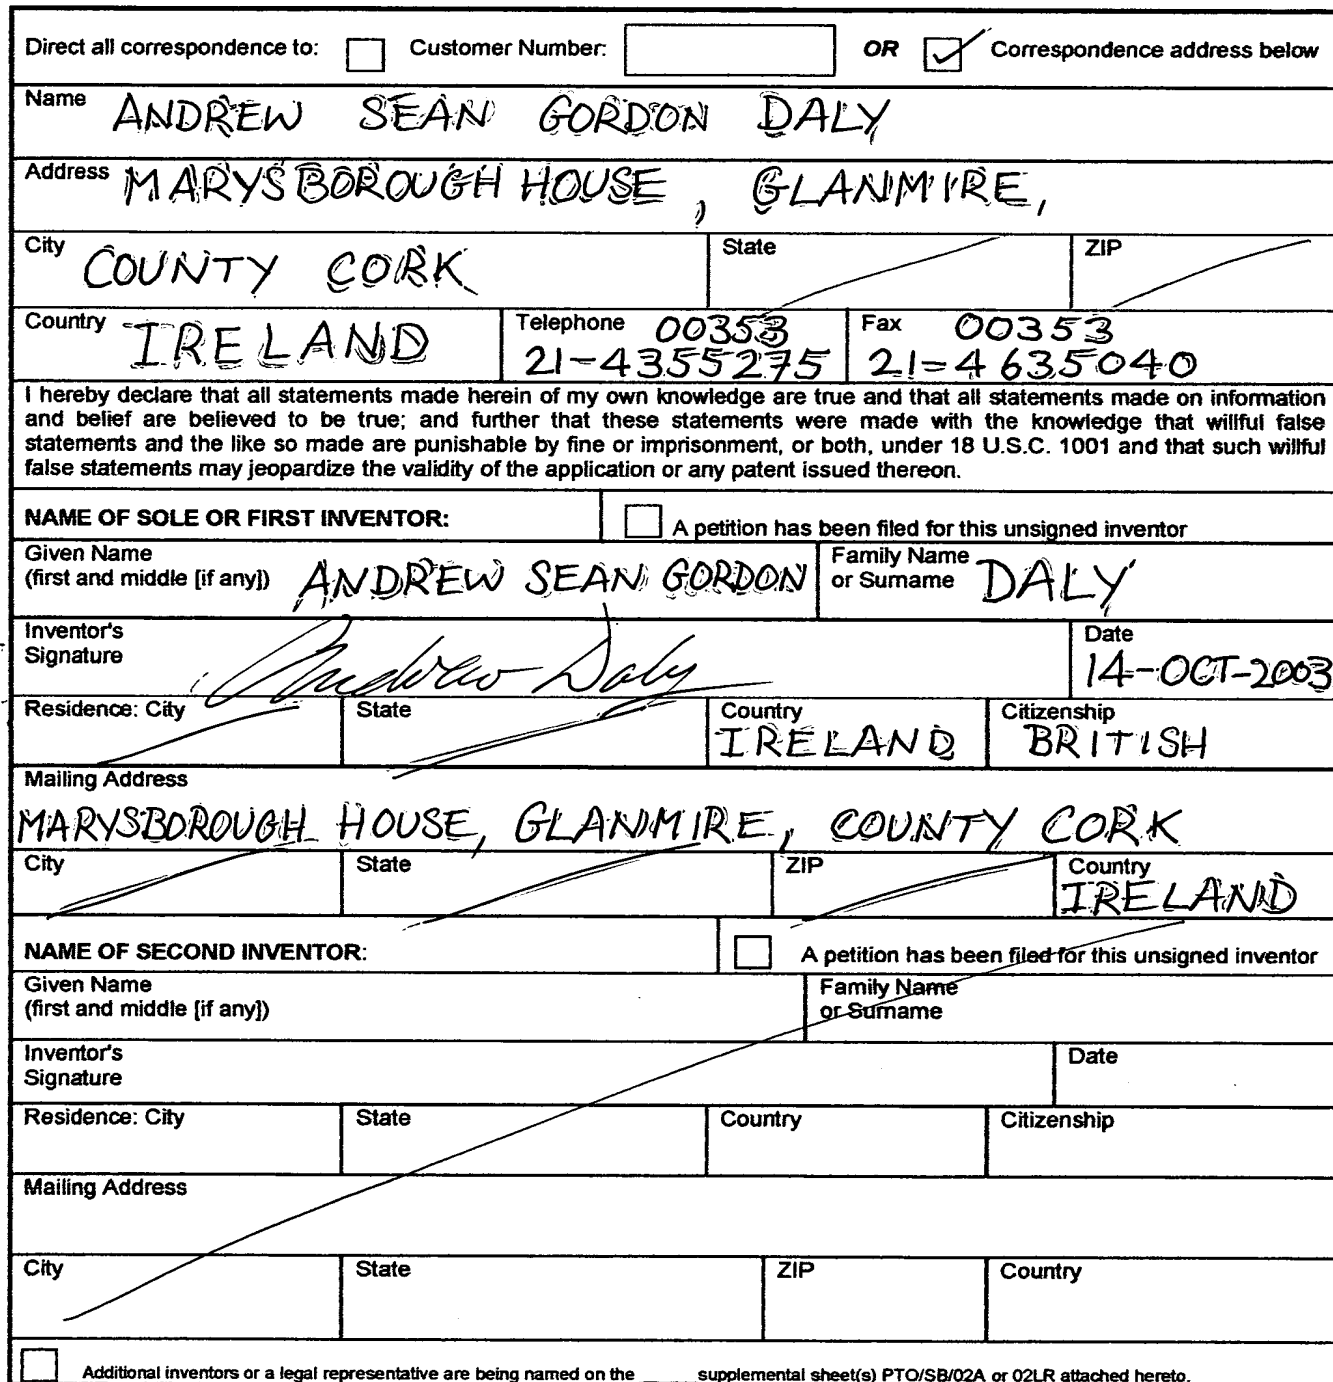 Direct all correspondence to: Customer Number: OR Correspondence address below
Name ANDREW SEAN GORDON DALY
Address MARYSBOROUGH HOUSE, GLANMIRE,
City COUNTY CORK State ZIP
Country IRELAND Telephone 00353 Fax 00353
21-4355275 21-4635040
I hereby declare that all statements made herein of my own knowledge are true and that all statements made on information
and belief are believed to be true; and further that these statements were made with the knowledge that willful false
statements and the like so made are punishable by fine or imprisonment, or both, under 18 U.S.C. 1001 and that such willful
false statements may jeopardize the validity of the application or any patent issued thereon.
NAME OF SOLE OR FIRST INVENTOR: A petition has been filed for this unsigned inventor
Given Name
(first and middle [if any]) ANDREW SEAN GORDON Family Name
or Surname DALY
Inventor's
Signature Andrew Daly Date
14-OCT-2003
Residence: City State Country
IRELAND Citizenship
BRITISH
Mailing Address
MARYSBOROUGH HOUSE, GLANMIRE, COUNTY CORK
City State ZIP Country
IRELAND
NAME OF SECOND INVENTOR: A petition has been filed for this unsigned inventor
Given Name
(first and middle [if any]) Family Name
or Surname
Inventor's
Signature Date
Residence: City State Country Citizenship
Mailing Address
City State ZIP Country
Additional inventors or a legal representative are being named on the _____ supplemental sheet(s) PTO/SB/02A or 02LR attached hereto.